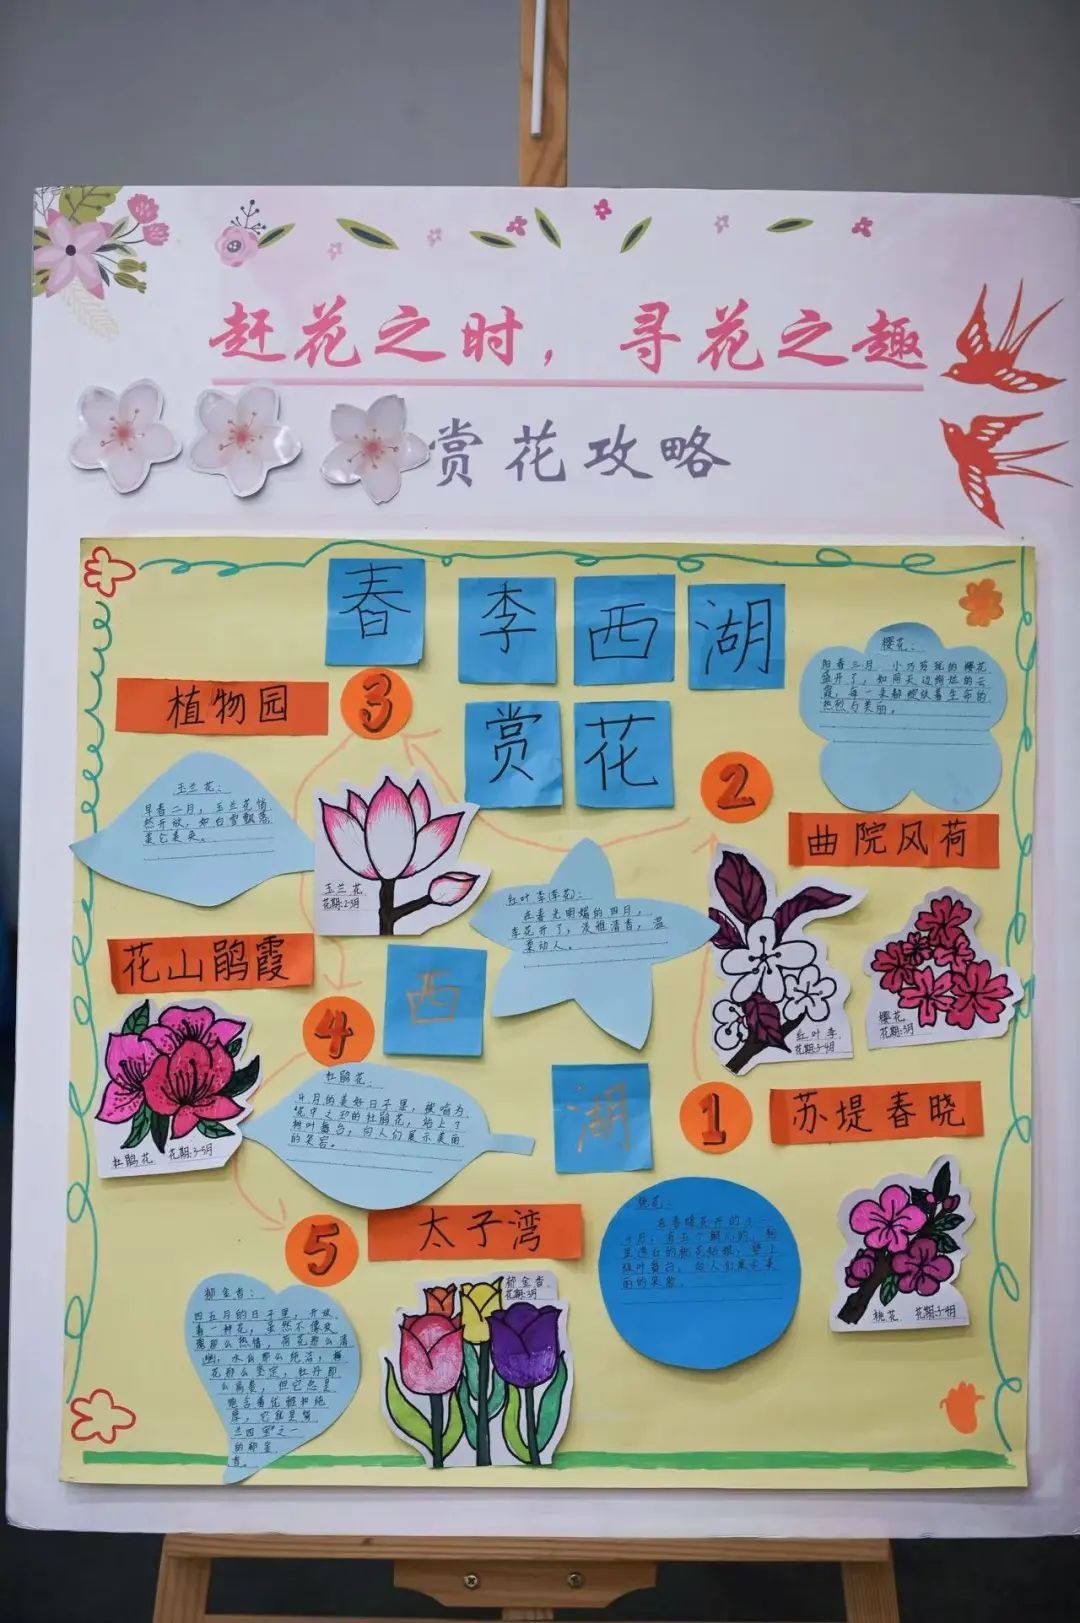 赶花之时，寻花之趣
赏花攻略
春李西湖
赏花
植物园
3
玉兰花：
早春二月，玉兰花悄
然开放，如白雪飘落
玉兰花
花期:2-3月
2
樱花：
阳春三月
盛开了，如同天边绚烂的云
霞，每一朵都绽放着生命的
热烈与美丽。
曲院风荷
红叶李(李花)：
在春光明媚的四月，
李花开了，淡雅清香，温
柔动人。
红叶李
花期:3-4月
樱花
花期:3月
花山鹃霞
4
西
湖
杜鹃花
花期:3-5月
杜鹃花：
4月的美好日子里，被喻为
花中之 的杜鹃花，站上了
树叶舞台，向人们展示美丽
的笑容。
1
苏堤春晓
桃花：
在春暖花开的3-
4月
绿叶舞台，向人们展示美
丽的笑脸。
桃花 花期:3-4月
5
太子湾
郁金香：
四五月的日子里，开放
着一种花，虽然不像玫
瑰那么热情，荷花那么清
幽，水仙那么纯洁，梅
花那么坚定，牡丹那
么高贵，但它总是
兰四宝之一
的郁金
香。
郁金香
花期:3月